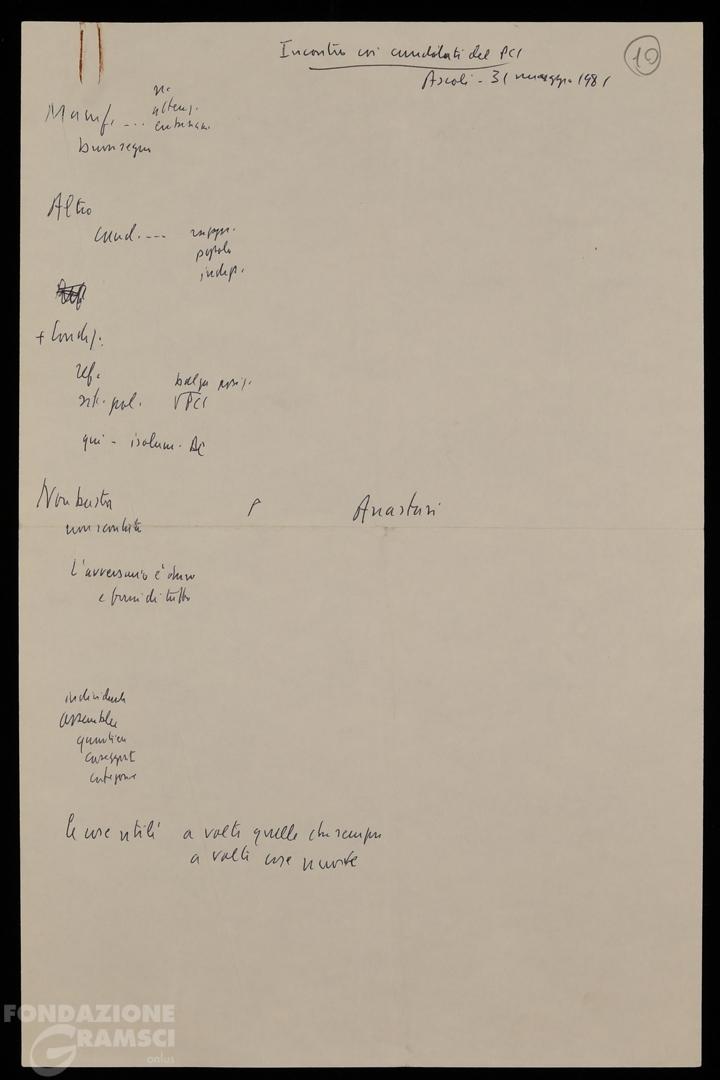 Incontro coi candidati del PCI
10
Ascoli - 31 maggio 1981
Manif. ...
entusiasm.
Altro
cand. ....
rappr.
popolo
indip.
+ Condiz.
ref.
sit. pol.
√ PCI
qui - isolam. DC
Non basta
non scontata
P
Anastasi
L'avversario è duro
e fornito di tutto
individuale
assemblee
quartiere
caseggiat
categorie
le cose utili a volte quelle di sempre
a volte cose nuove
FONDAZIONE
GRAMSCI
onlus